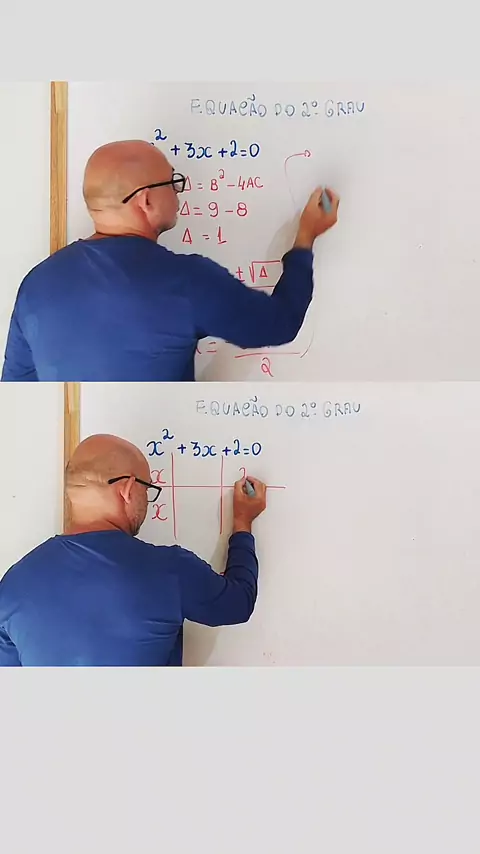 EQUAÇÃO DO 2º GRAU
² + 3x + 2 = 0
Δ = B² - 4AC
Δ = 9 - 8
Δ = 1
± √Δ
=
2
EQUAÇÃO DO 2º GRAU
x² + 3x + 2 = 0
x
x